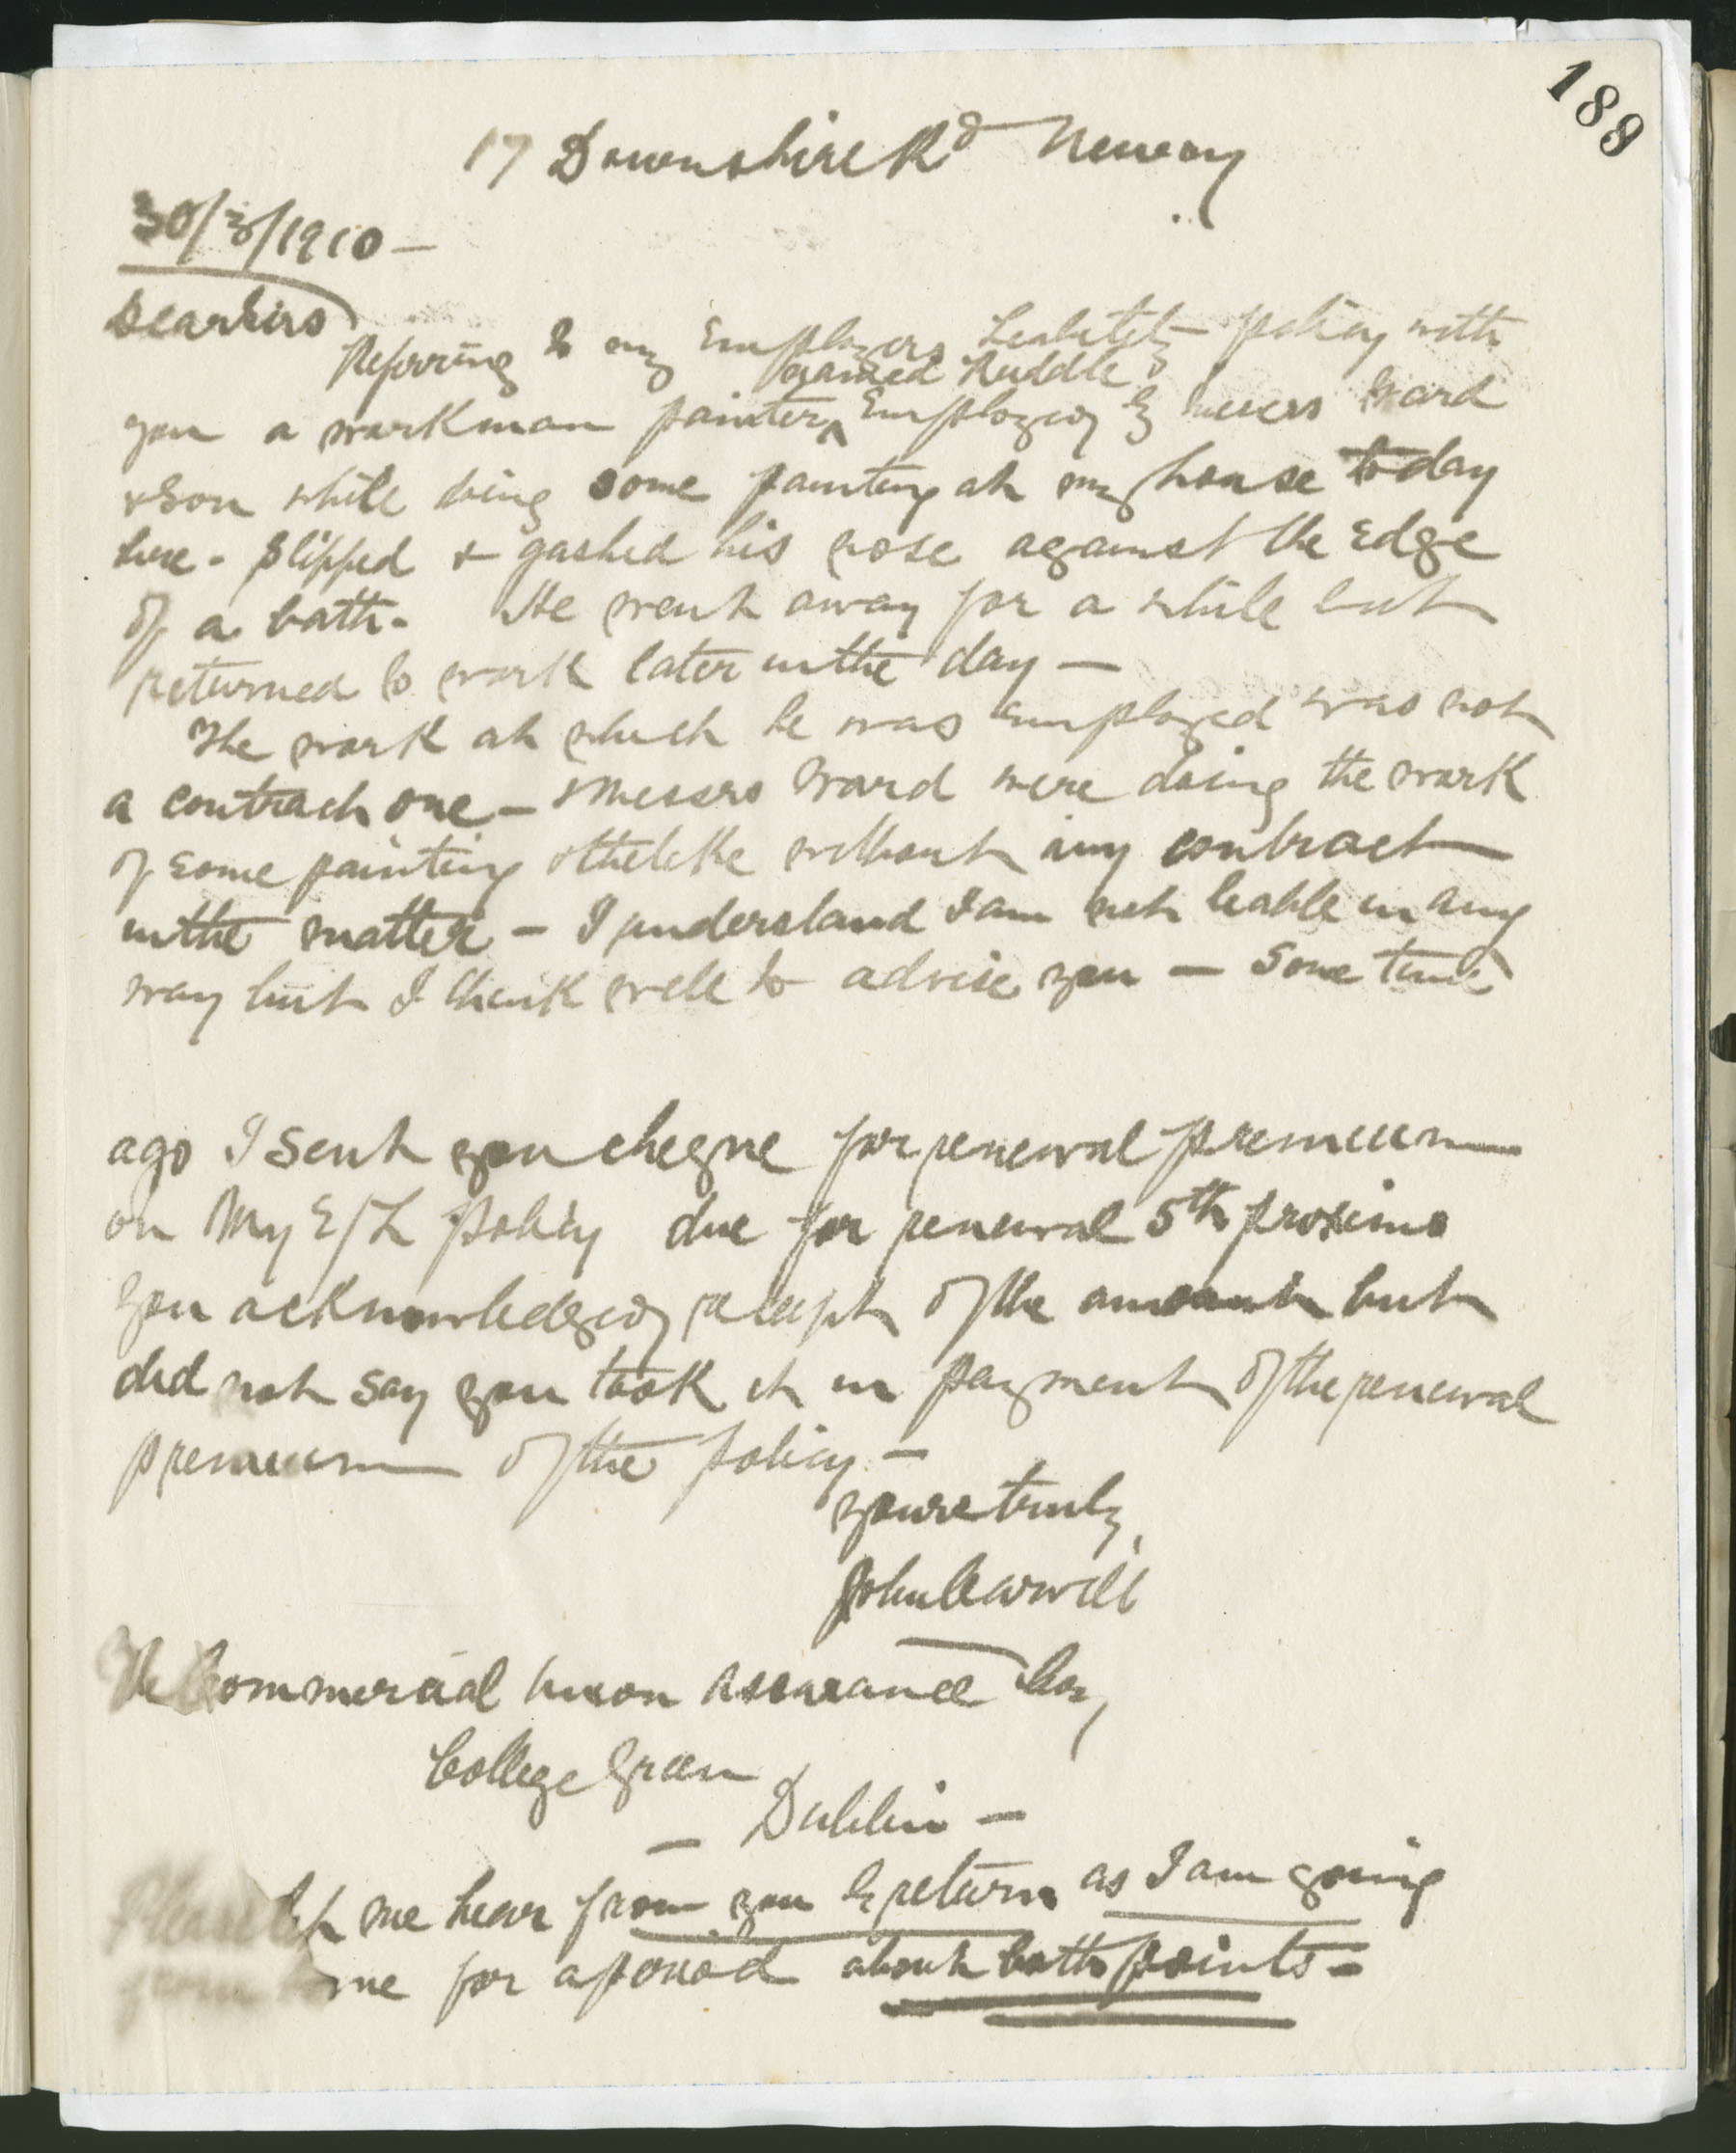 188
17 Downshire Rd Newry
30/3/1910 —
Dear Sirs
Referring to my Employers Liability policy with
named Ruddle
you a workman painter ^ Employed by Messrs Ward
& Son while doing some painting at my house today
here - slipped & gashed his nose against the Edge
of a bath - He went away for a while but
returned to work later in the day —
The work at which he was Employed was not
a contract one — Messrs Ward were doing the work
of some painting & the like without any contract
in the matter — I understand I am not liable in any
way but I think well to advise you — Some time
ago I sent you cheque for renewal premium
on My E/L policy due for renewal 5th proximo
you acknowledged receipt of the amount but
did not say you took it in payment of the renewal
premium of the policy —
yours truly
John
The Commercial Union Assurance Coy,
College Green
— Dublin —
Please let me hear from you by return as I am going
from home for a period about both points —